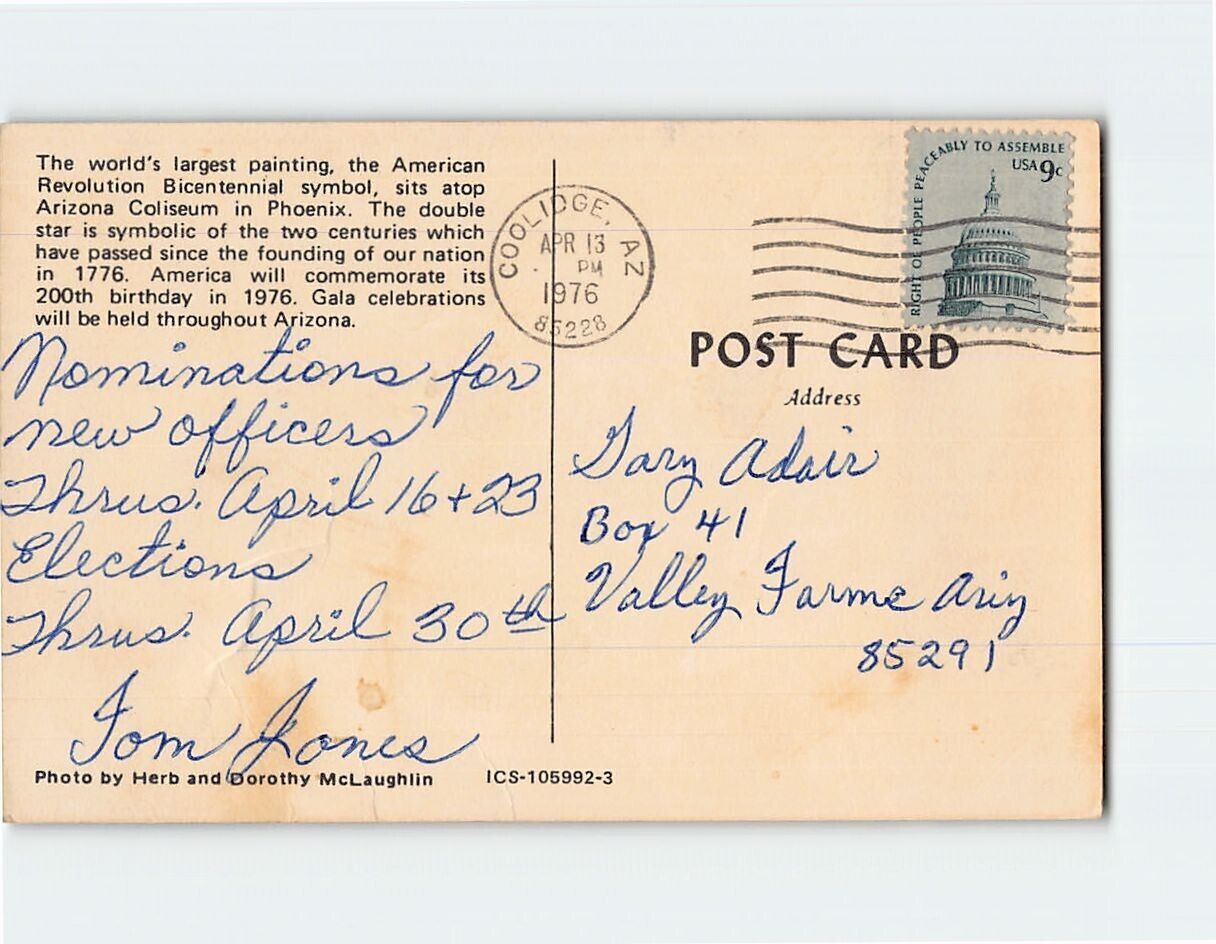 The world's largest painting, the American
Revolution Bicentennial symbol, sits atop
Arizona Coliseum in Phoenix. The double
star is symbolic of the two centuries which
have passed since the founding of our nation
in 1776. America will commemorate its
200th birthday in 1976. Gala celebrations
will be held throughout Arizona.
Nominations for
new officers
Thrus. April 16 + 23
Elections
Thrus. April 30th
Tom Jones
Photo by Herb and Dorothy McLaughlin
ICS-105992-3
COOLIDGE, AZ
APR 13
PM
1976
85228
RIGHT OF PEOPLE PEACEABLY TO ASSEMBLE
USA 9c
POST CARD
Address
Gary Adair
Box 41
Valley Farms Ariz
85291